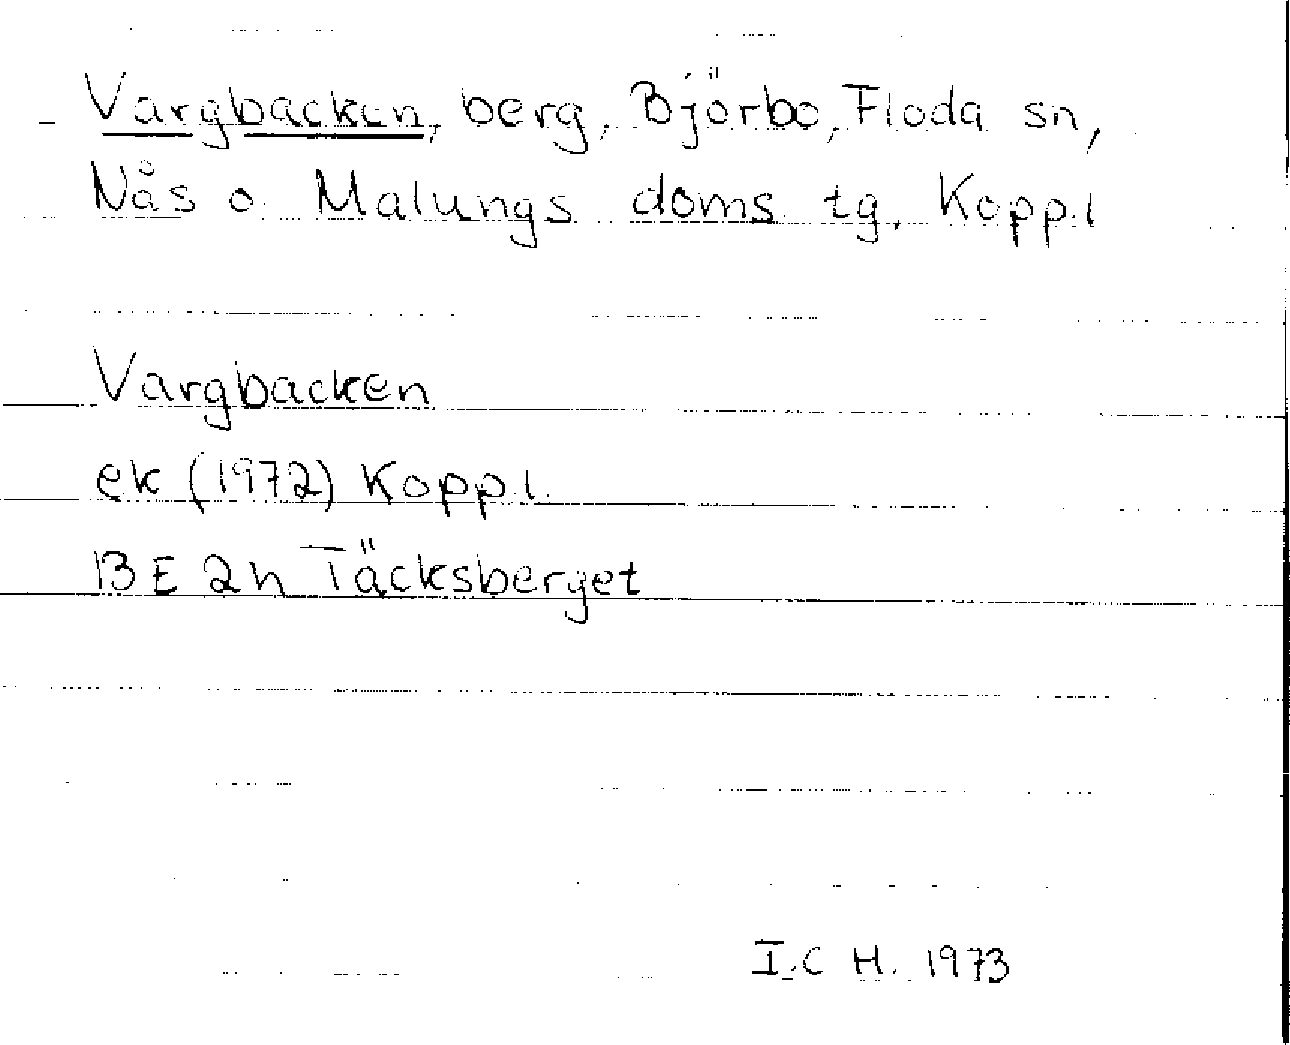 Vargbacken, berg, Björbo, Floda sn,
Nås o. Malungs doms tg, Koppl
Vargbacken
ek (1972) Koppl.
13 E 2h Täcksberget
I.C H. 1973